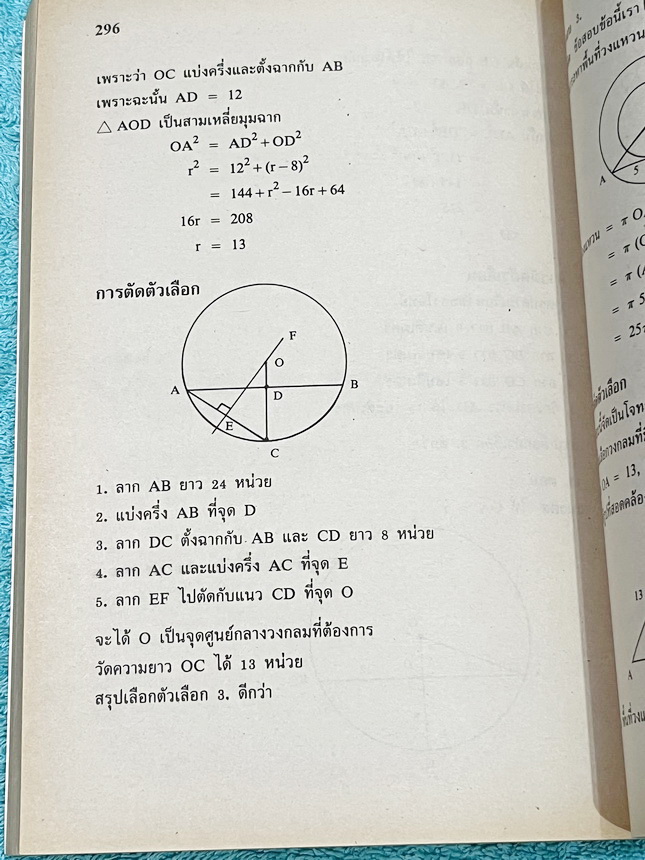 296
เพราะว่า OC แบ่งครึ่งและตั้งฉากกับ AB
เพราะฉะนั้น AD = 12
△ AOD เป็นสามเหลี่ยมมุมฉาก
OA² = AD² + OD²
r² = 12² + (r – 8)²
= 144 + r² – 16r + 64
16r = 208
r = 13
การตัดตัวเลือก
F
O
A
B
D
E
C
1. ลาก AB ยาว 24 หน่วย
2. แบ่งครึ่ง AB ที่จุด D
3. ลาก DC ตั้งฉากกับ AB และ CD ยาว 8 หน่วย
4. ลาก AC และแบ่งครึ่ง AC ที่จุด E
5. ลาก EF ไปตัดกับแนว CD ที่จุด O
จะได้ O เป็นจุดศูนย์กลางวงกลมที่ต้องการ
วัดความยาว OC ได้ 13 หน่วย
สรุปเลือกตัวเลือก 3. ดีกว่า
3.
ข้อสอบข้อนี้เรา
หาพื้นที่วงแหวน
A
5
= π
= π (
= π (
= π 5
= 25
ตัวเลือก
OA = 13,
13
A